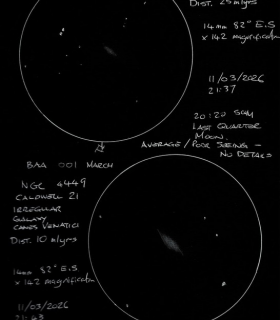 DIST. 25 mlyrs
14mm 82° E.S
x 142 magnification
11/03/2026
21:37
20:20 SQM
LAST QUARTER
MOON.
AVERAGE / POOR SEEING -
NO DETAILS
BAA OOTM MARCH
NGC 4449
CALDWELL 21
IRREGULAR
GALAXY
CANES VENATICI
DIST. 10 mlyrs
14mm 82° E.S
x 142 magnification
11/03/2026
21:43